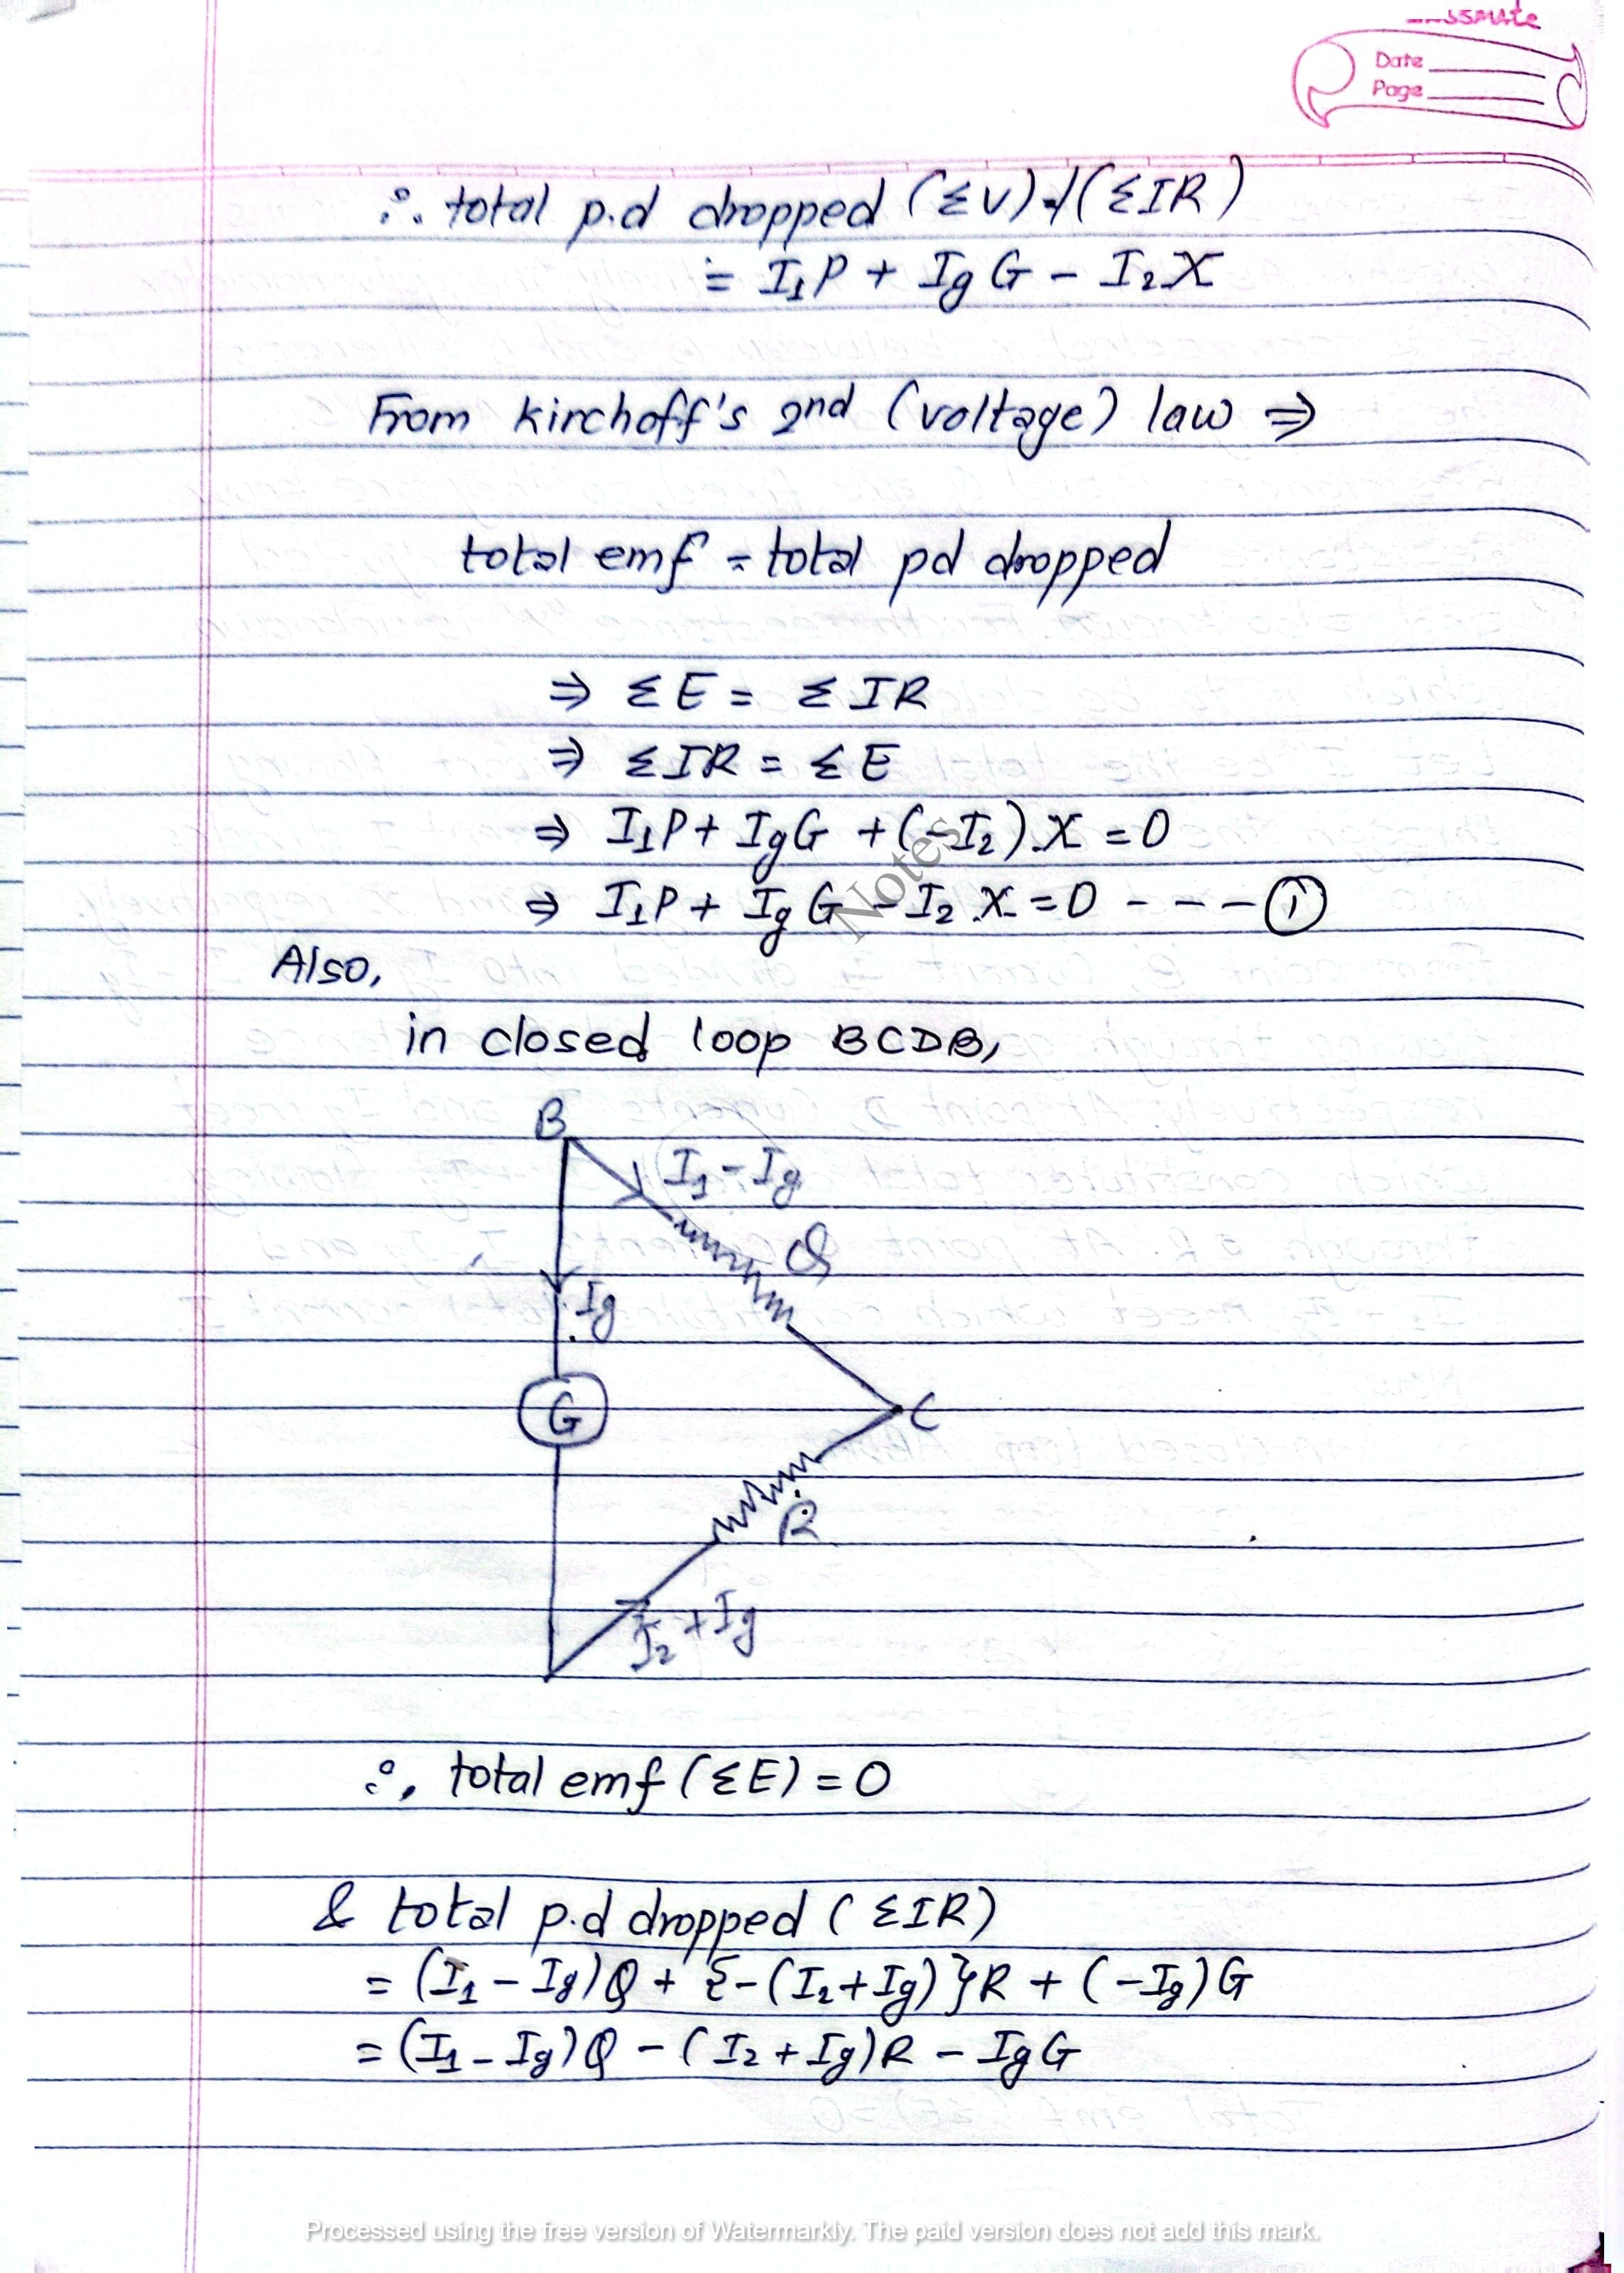 classmate
Date
Page
∴ total p.d dropped (ΣV) / (ΣIR)
= I₁P + Ig G - I₂X
From kirchoff's 2nd (voltage) law ⇒
total emf = total pd dropped
⇒ ΣE = ΣIR
⇒ ΣIR = ΣE
⇒ I₁P + IgG + (-I₂).X = 0
⇒ I₁P + Ig G - I₂.X = 0 - - - ①
Notes
Also,
in closed loop BCDB,
B
I₁ - Ig
Q
Ig
G
C
R
I₂ + Ig
∴ total emf (ΣE) = 0
& total p.d dropped (ΣIR)
= (I₁ - Ig)Q + {-(I₂+Ig)}R + (-Ig)G
= (I₁ - Ig)Q - (I₂ + Ig)R - IgG
Processed using the free version of Watermarkly. The paid version does not add this mark.